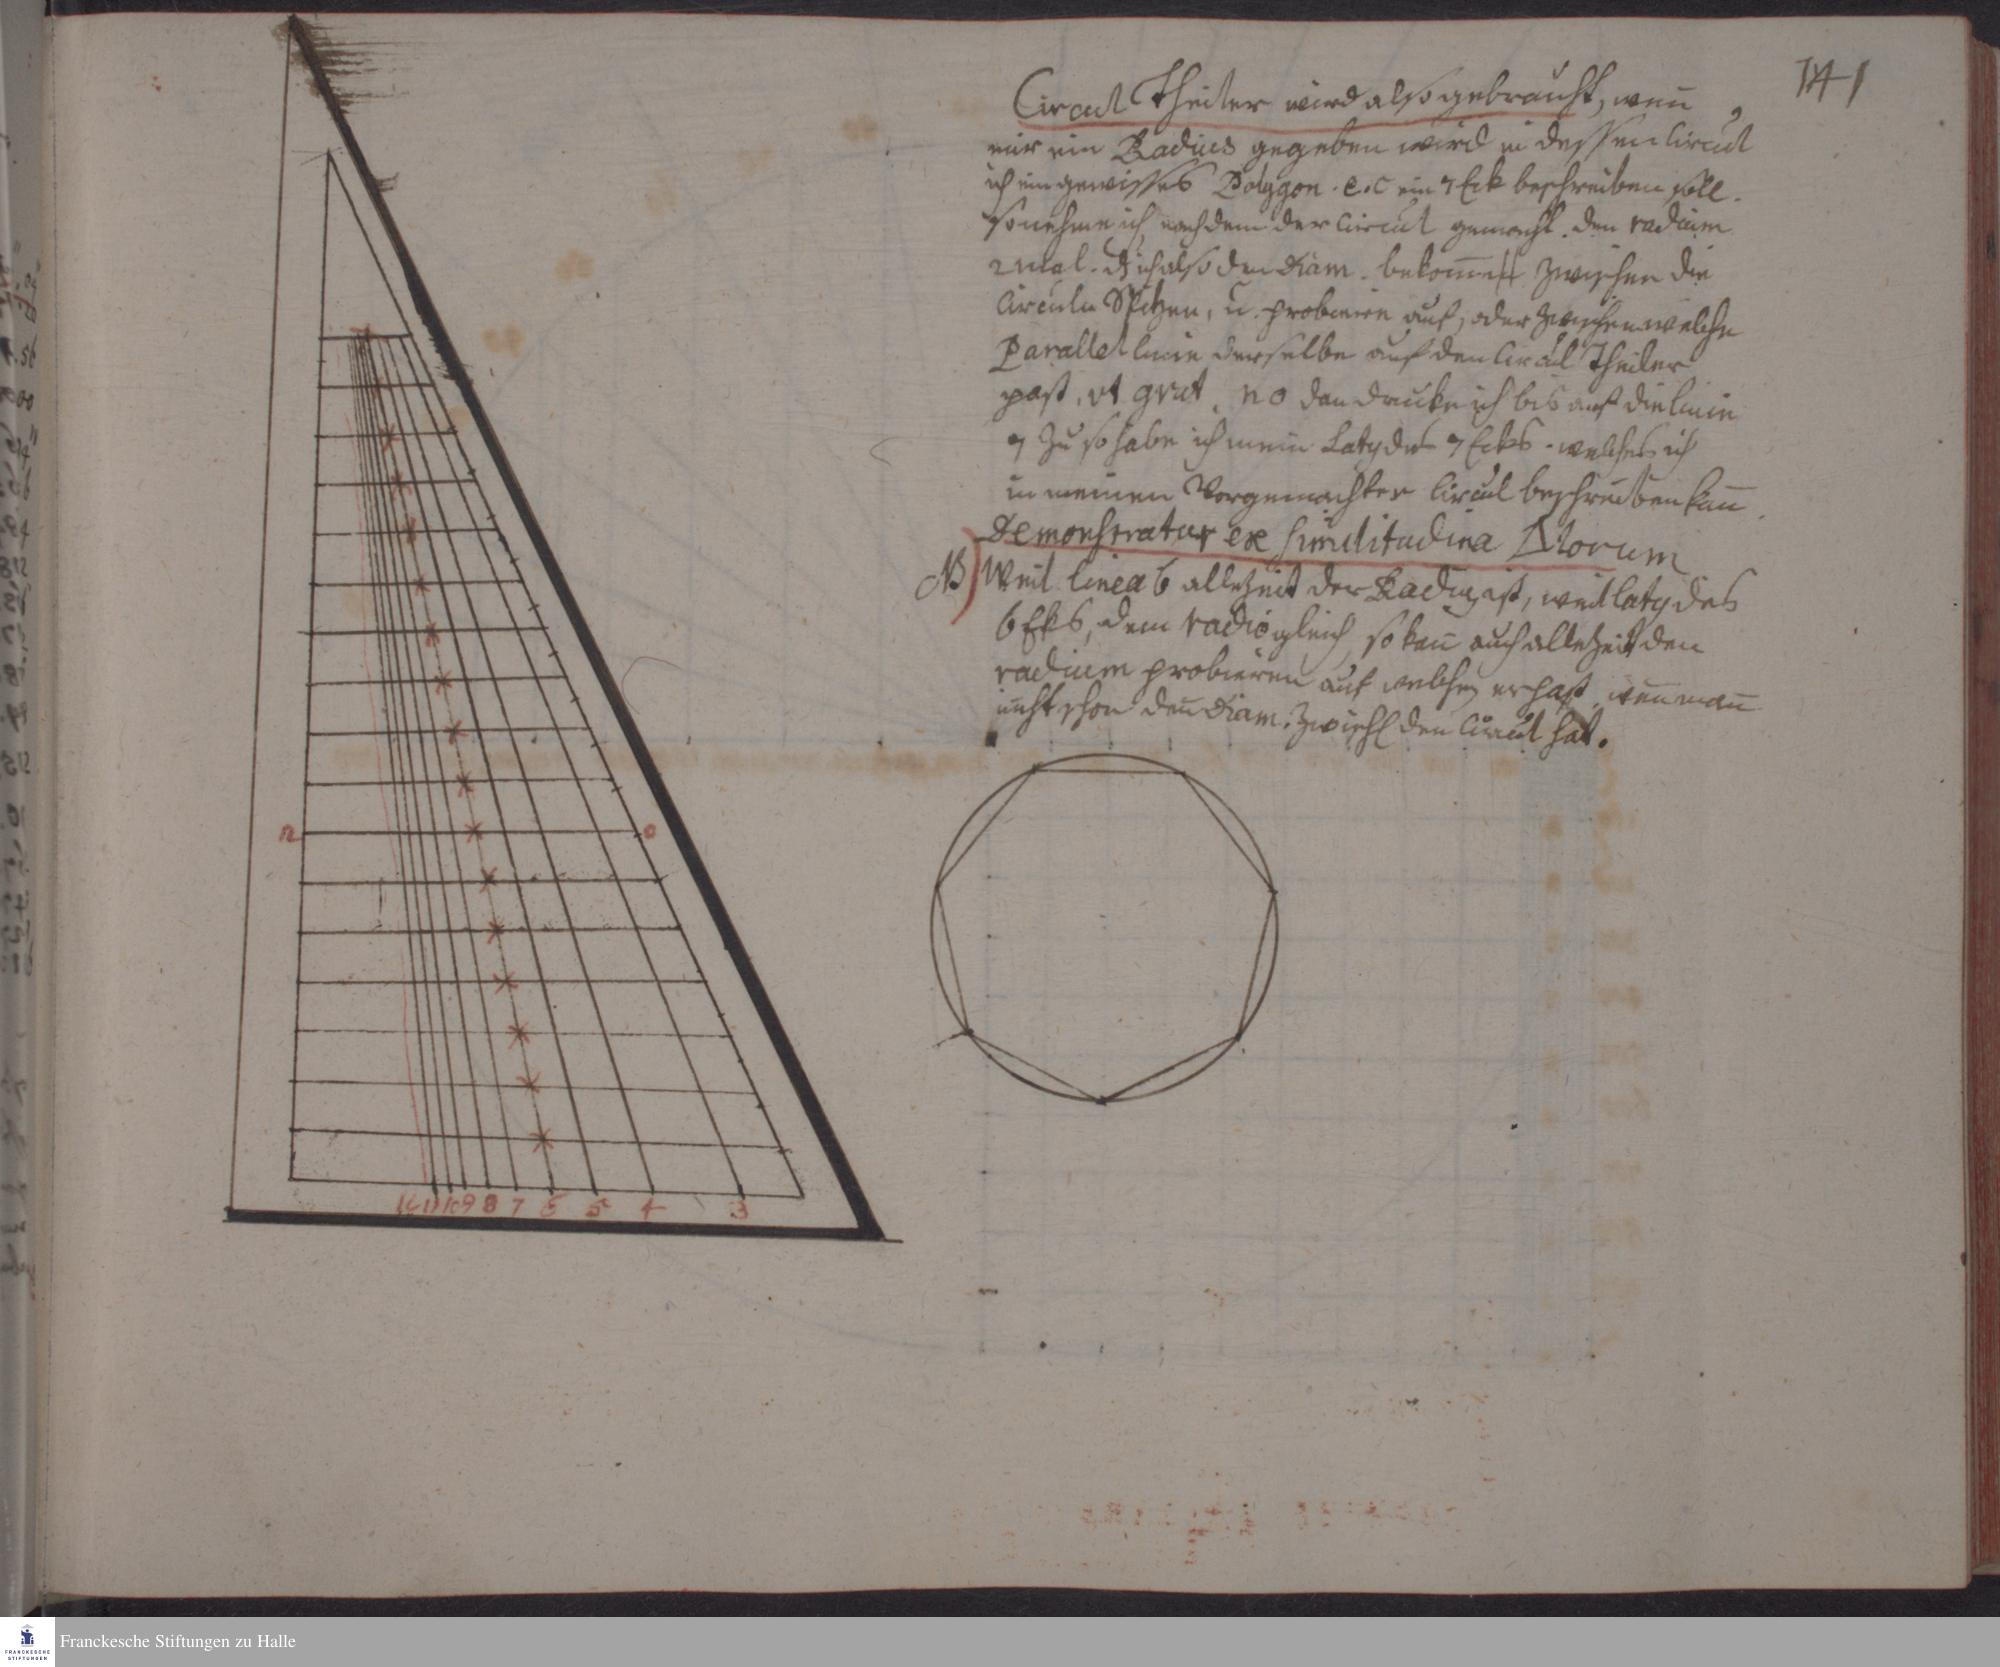 141
Circul Theiler wird also gebraucht, wenn
mir ein Radius gegeben wird in dessen Circul
ich ein gewisses Polygon. e.c ein 7 Eck beschreiben soll.
so nehme ich nach dem der Circul gemacht. den radium
2 mal. dß ich also den Diam. bekomme zwischen die
Circuln Spitzen, u. probiere auf, oder zwischen welche
Parallel linie derselbe auf den Circul Theiler
past, ut grat. no dan drucke ich bis auf die linie
7 zu so habe ich mein Latq des 7 Ecks. welches ich
in meinen Vorgemachter Circul beschreiben kann.
Demonstratur ex similitudina Δlorum
NB) Weil linea 6 allezeit der Radiq ist, weil latq des
6 Eks, dem radio gleich, so kan auch allezeit den
radium probieren auf welchen er past, wenn mann
nicht schon den Diam. zwischen den Circul hat.
n o
12 11 10 9 8 7 6 5 4 3
FRANCKESCHE
STIFTUNGEN
Franckesche Stiftungen zu Halle